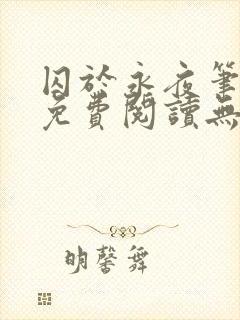 囚於永夜筆
免費閱讀無
明馨舞